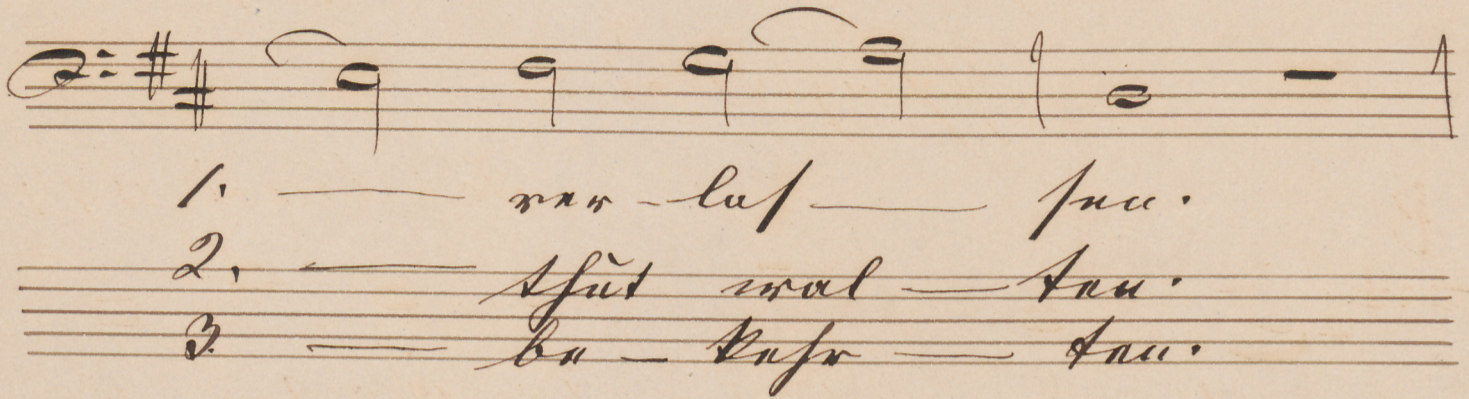 1. — ver-las — sen.
2. — thut wal — ten.
3. — be — kehr — ten.